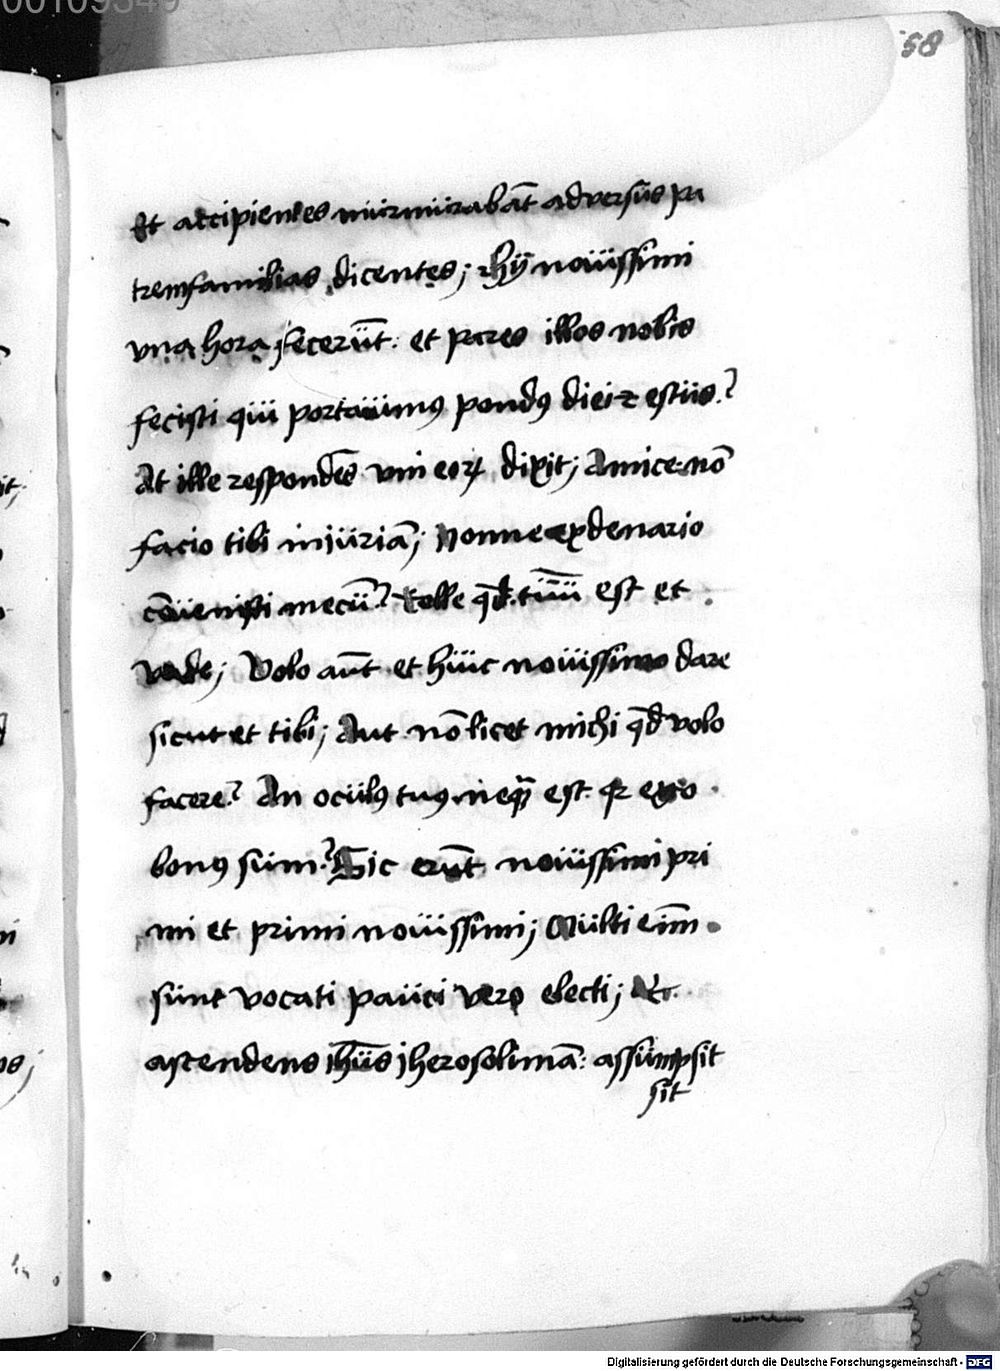 58
Et accipientes murmurabāt adversūs pa
tremfamilias dicentes; ⁊ hÿ novissimi
vna hora fecerūt. et pares illos nobis
fecisti qui portauimꝰ pondꝰ diei ⁊ estus?
At ille respondēs vni eorꝝ dixit; Amice nō
facio tibi iniuriā; Nonne ex denario
cōuenisti mecū? Tolle qd̄ tuū est et
vade; Volo aūt et huic nouissimo dare
sicut et tibi; Aut nō licet michi qd̄ volo
facere? An oculꝰ tuꝰ neq̄ est qr ego
bonꝰ sum? Sic erūt nouissimi pri
mi et primi nouissimi; Multi eim̄
sunt vocati pauci vero electi; Et
ascendens ihūs iherosolimā: assumpsit
sit
Digitalisierung gefördert durch die Deutsche Forschungsgemeinschaft - DFG